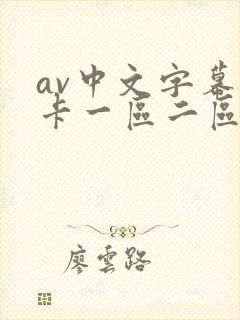 av中文字幕
卡一區二區
廖雲路